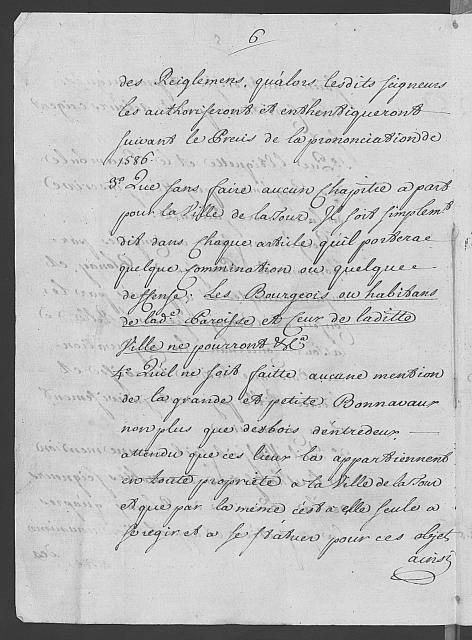 6
des Reiglemens, qu'alors lesdits seigneurs
les authoriseront et enthentiqueront
suivant le Precis de la prononciation de
1586.
3.º Que sans faire aucun Chapitre a part
pour la Ville de la Tour. Il soit simplemt
dit dans Chaque article quil portera
quelque Commination ou quelque
deffense; Les Bourgeois ou habitans
de lade. Paroisse et Ceux de laditte
Ville ne pourront &ca
4.º Quil ne soit faitte aucune mention
de la grande et petite Bonnavaux
non plus que desbois d'entredeux
attendu que ces lieux la appartiennent
en toute propriété a la Ville de la Tour
et que par la même c'est a elle seule a
se regir et a se statuer pour ces objets
ainsi